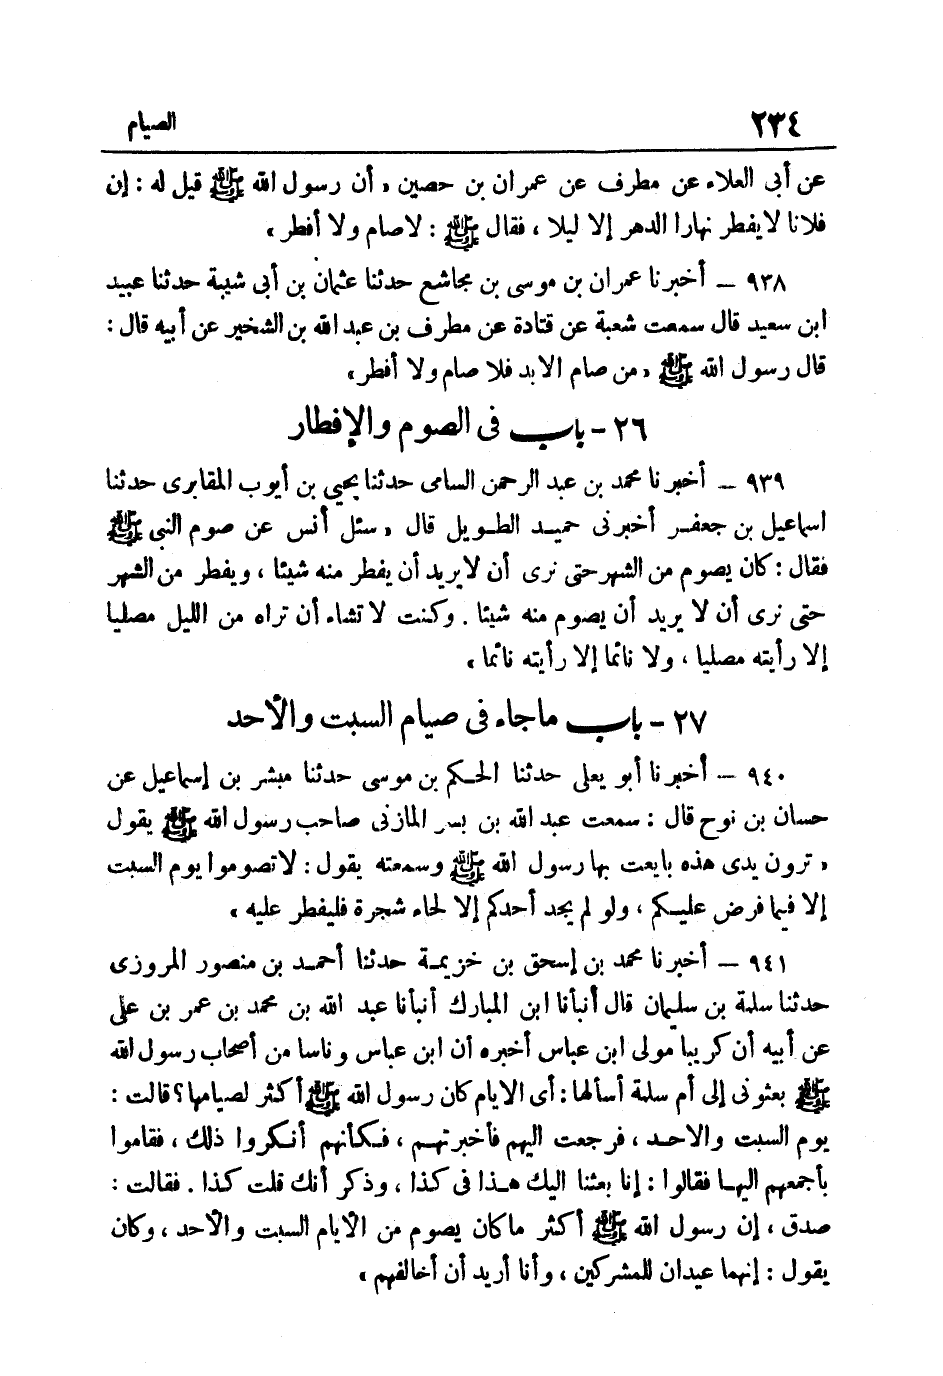 ٢٣٤ الصيام
عن أبى العلاء عن مطرف عن عمران بن حصين « أن رسول الله ﷺ قيل له : إن
فلانا لايفطر نهارا الدهر إلا ليلا ، فقال ﷺ : لاصام ولا أفطر »
٩٣٨ — أخبرنا عمران بن موسى بن مجاشع حدثنا عثمان بن أبى شيبة حدثنا عبيد
ابن سعيد قال سمعت شعبة عن قتادة عن مطرف بن عبد الله بن الشخير عن أبيه قال :
قال رسول الله ﷺ « من صام الابد فلا صام ولا أفطر »
٢٦ - باب فى الصوم والإفطار
٩٣٩ — أخبرنا محمد بن عبد الرحمن السامى حدثنا يحيي بن أيوب المقابرى حدثنا
اسماعيل بن جعفر أخبرنى حميد الطويل قال « سئل أنس عن صوم النبى ﷺ
فقال : كان يصوم من الشهر حتى نرى أن لايريد أن يفطر منه شيئا ، ويفطر من الشهر
حتى نرى أن لا يريد أن يصوم منه شيئا . وكنت لا تشاء أن تراه من الليل مصليا
إلا رأيته مصليا ، ولا نائما إلا رأيته نائما »
٢٧ - باب ماجاء فى صيام السبت والأحد
٩٤٠ — أخبرنا أبو يعلى حدثنا الحكم بن موسى حدثنا مبشر بن إسماعيل عن
حسان بن نوح قال : سمعت عبد الله بن بسر المازنى صاحب رسول الله ﷺ يقول
« ترون يدى هذه بايعت بها رسول الله ﷺ وسمعته يقول : لاتصوموا يوم السبت
إلا فيما فرض عليكم ، ولو لم يجد أحدكم إلا لحاء شجرة فليفطر عليه »
٩٤١ — أخبرنا محمد بن إسحق بن خزيمة حدثنا أحمد بن منصور المروزى
حدثنا سلمة بن سليمان قال أنبأنا ابن المبارك أنبأنا عبد الله بن محمد بن عمر بن على
عن أبيه أن كريبا مولى ابن عباس أخبره أن ابن عباس وناسا من أصحاب رسول الله
ﷺ بعثونى إلى أم سلمة أسألها : أى الايام كان رسول الله ﷺ أكثر لصيامها ؟ قالت :
يوم السبت والاحد ، فرجعت اليهم فأخبرتهم ، فكأنهم أنكروا ذلك ، فقاموا
بأجمعهم اليها فقالوا : إنا بعثنا اليك هذا فى كذا ، وذكر أنك قلت كذا . فقالت :
صدق ، إن رسول الله ﷺ أكثر ماكان يصوم من الأيام السبت والأحد ، وكان
يقول : إنهما عيدان للمشركين ، وأنا أريد أن أخالفهم »